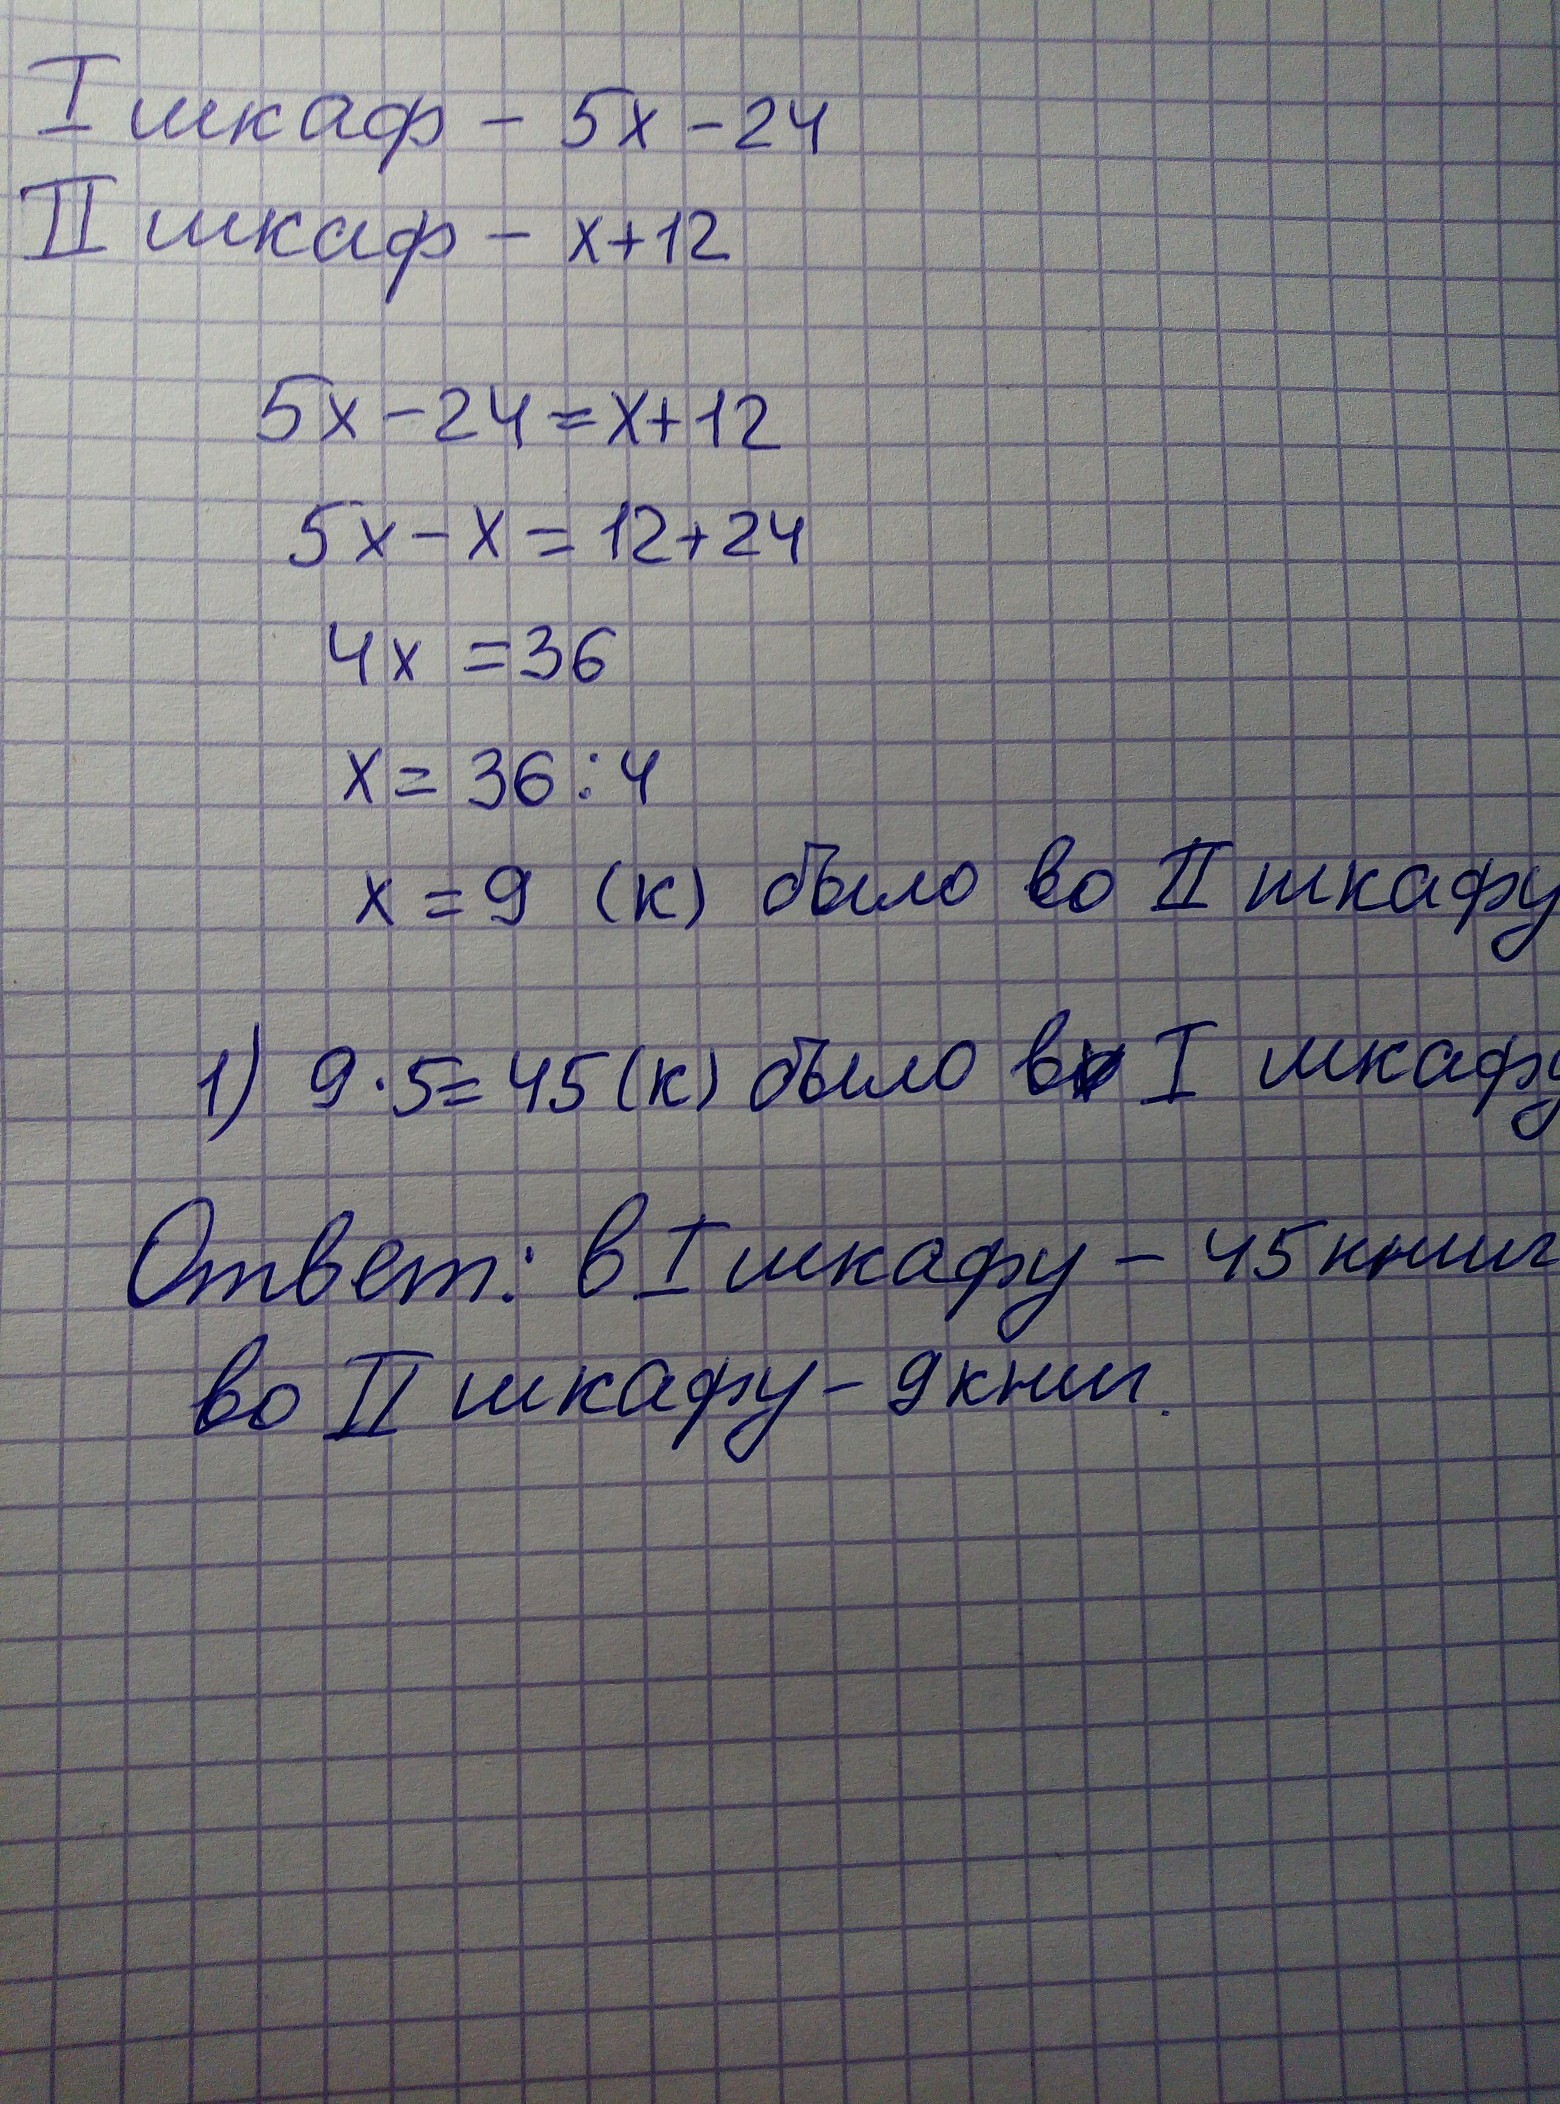 I шкаф - 5x - 24
II шкаф - x+12
5x - 24 = x+12
5x - x = 12+24
4x = 36
x = 36 : 4
x = 9 (к) было во II шкафу
1) 9·5=45(к) было в I шкафу
Ответ: в I шкафу - 45 книг
во II шкафу - 9 книг.